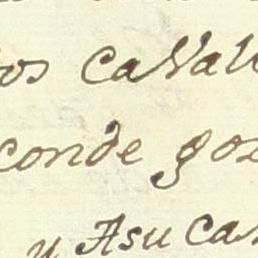 os caVal
conde goz
y Asu cas